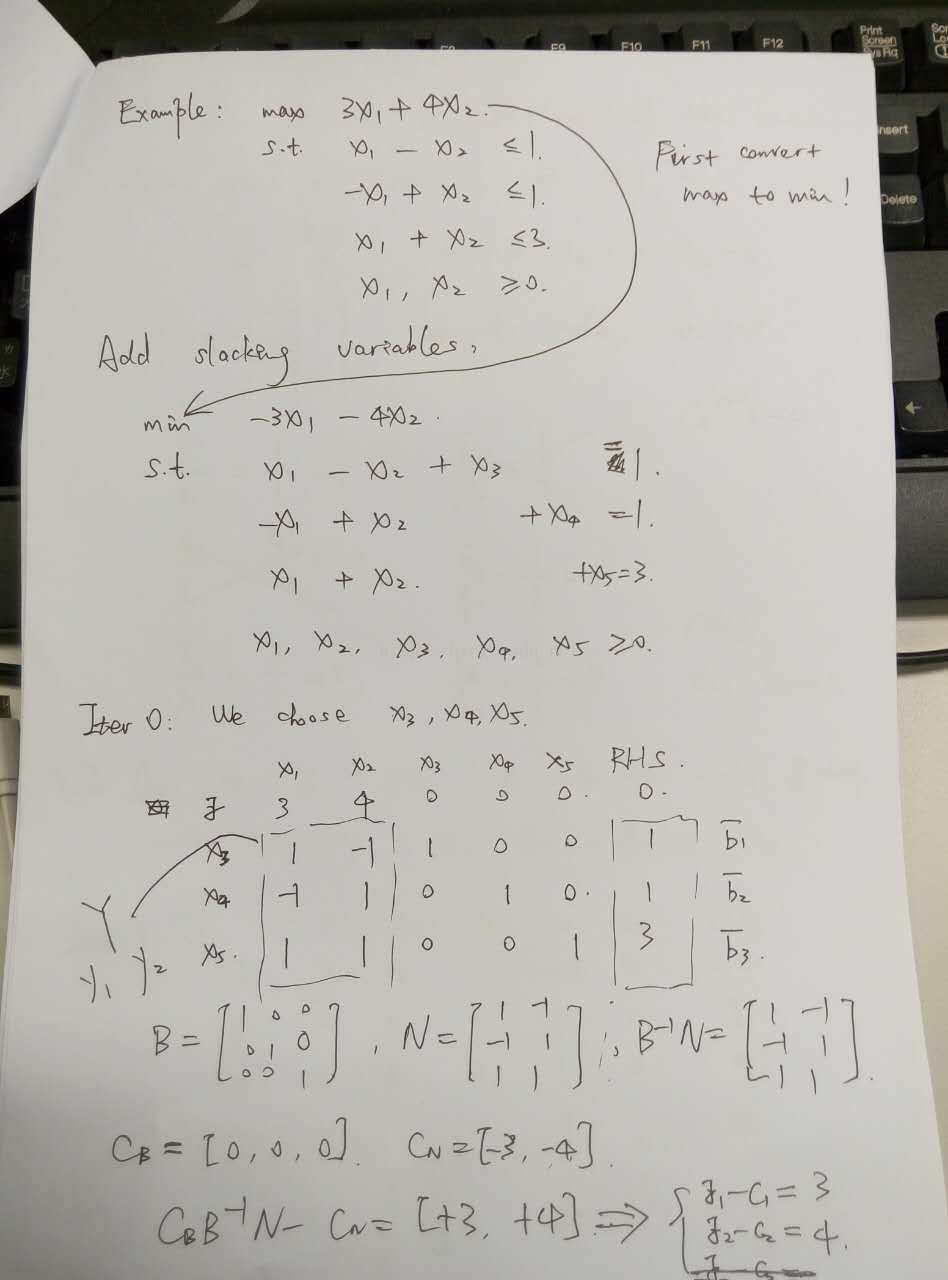 F9 F10 F11 F12 Print Screen Sys Rq
Insert
Delete
Example: max 3x₁ + 4x₂.
s.t. x₁ - x₂ ≤ 1.
-x₁ + x₂ ≤ 1.
x₁ + x₂ ≤ 3.
x₁, x₂ ≥ 0.
First convert
max to min!
Add slacking variables,
min -3x₁ - 4x₂.
s.t. x₁ - x₂ + x₃ = 1.
-x₁ + x₂ + x₄ = 1.
x₁ + x₂. + x₅ = 3.
x₁, x₂, x₃, x₄, x₅ ≥ 0.
Iter 0: We choose x₃, x₄, x₅.
x₁ x₂ x₃ x₄ x₅ RHS.
z 3 4 0 0 0. 0.
x₃ 1 -1 1 0 0 1 b̄₁
x₄ -1 1 0 1 0. 1 b̄₂
x₅. 1 1 0 0 1 3 b̄₃.
Y
y₁ y₂
B = [1 0 0; 0 1 0; 0 0 1], N = [1 -1; -1 1; 1 1], B⁻¹N = [1 -1; -1 1; 1 1].
C_B = [0, 0, 0]. C_N = [-3, -4].
C_B B⁻¹N - C_N = [+3, +4] ⇒ { z₁ - c₁ = 3
z₂ - c₂ = 4.